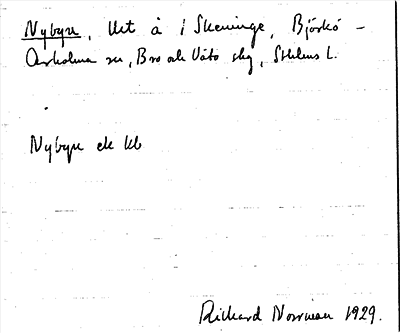 Nybyn, litt å i Skeninge, Björkö –
Arholma sn, Bro och Vätö skg, Sthlms L.
Nybyn ek kb
Rickard Norrman 1929.